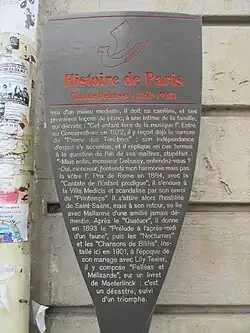 Histoire de Paris
Claude Debussy (1862-1918)
Issu d'un milieu modeste, il doit sa carrière, et ses
premières leçons de piano, à une intime de la famille,
qui décrète : "Cet enfant fera de la musique !". Entré
au Conservatoire en 1872, il y reçoit déjà le surnom
de "Prince des Ténèbres" ; son indépendance
d'esprit s'y accentue, et il réplique en ces termes
à la question de l'un de ses maîtres, stupéfait :
"-Mais enfin, monsieur Debussy, entendez-vous ?
-Oui, monsieur, j'entends mon harmonie mais pas
la vôtre !". Prix de Rome en 1884, avec la
"Cantate de l'Enfant prodigue", il s'ennuie à
la Villa Médicis et scandalise par son envoi
du "Printemps". Il s'attire alors l'hostilité
de Saint-Saëns, mais à son retour, se lie
avec Mallarmé d'une amitié jamais dé-
mentie. Après le "Quatuor", il donne
en 1893 le "Prélude à l'après-midi
d'un faune", puis les "Nocturnes"
et les "Chansons de Bilitis". Ins-
tallé ici en 1901, à l'époque de
son mariage avec Lily Texier,
il y compose "Pelléas et
Mélisande", sur un livret
de Maeterlinck : c'est
un désastre, suivi
d'un triomphe.